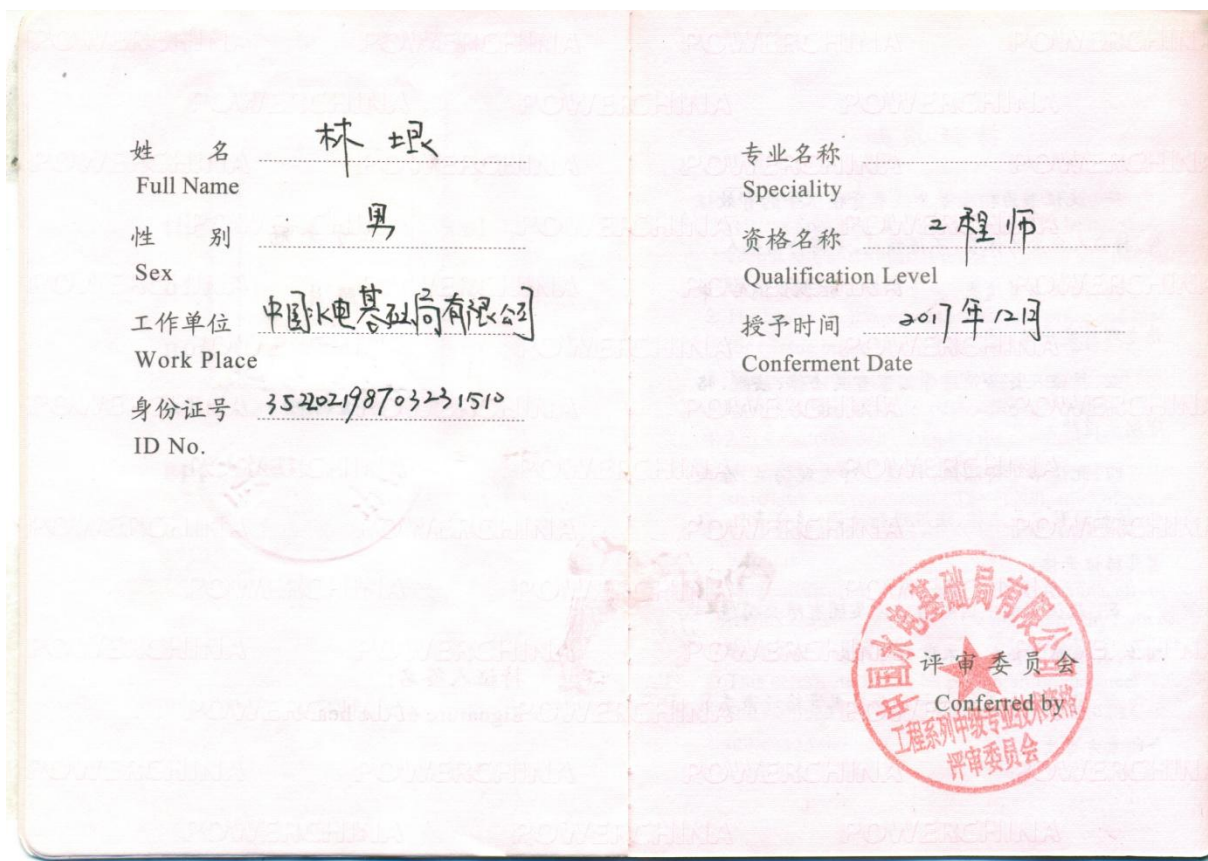 姓 名 林垠
Full Name
性 别 男
Sex
工作单位 中国水电基础局有限公司
Work Place
身份证号 352202198703231510
ID No.
专业名称
Speciality
资格名称 工程师
Qualification Level
授予时间 2017年12月
Conferment Date
中国水电基础局有限公司
评审委员会
Conferred by
工程系列中级专业技术资格
评审委员会